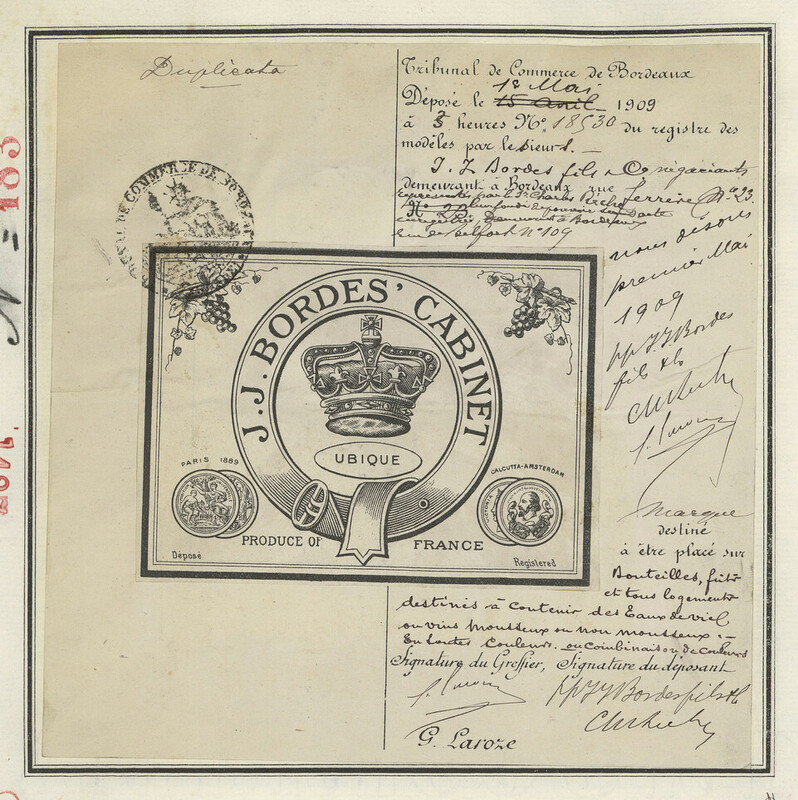 Duplicata
Tribunal de Commerce de Bordeaux
1er Mai
Déposé le 15 avril 1909
à 3 heures No. 18530 du registre des
modèles par le sieurs. —
J. J. Bordes fils & Co négociants
demeurant à Bordeaux rue Ferrère No 23.
rue de Belfort no 109
nous disons
premier Mai
1909
pp J. J. Bordes
fils & Co
TRIBUNAL DE COMMERCE DE BORDEAUX
J.J. BORDES' CABINET
UBIQUE
PARIS 1889
CALCUTTA-AMSTERDAM
PRODUCE OF FRANCE
Déposé
Registered
Marque
destiné
à être placé sur
Bouteilles, fûts
et tous logements
destinés à contenir des Eaux de vie
ou vins mousseux ou non mousseux. —
En toutes Couleurs. ou combinaison de couleurs
Signature du Greffier, Signature du déposant
pp J J Bordes fils & Co
G. Laroze
No = 183